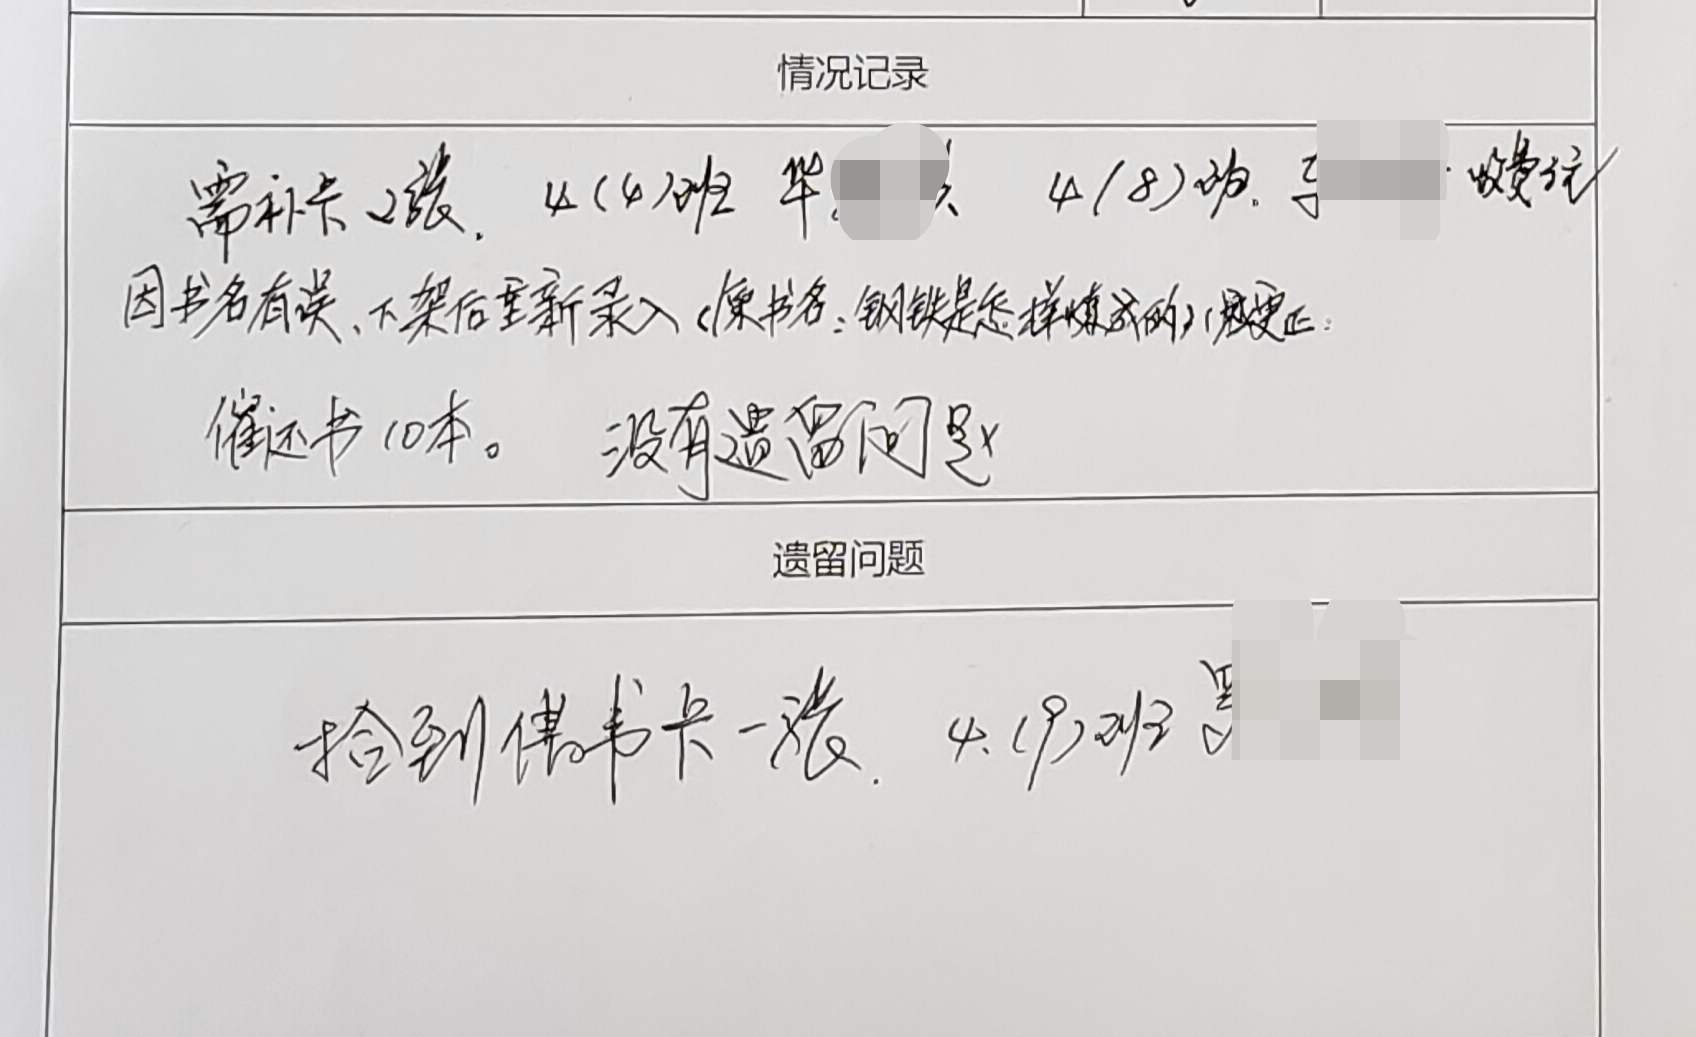 情况记录
需补卡2张. 4(4)班 华 4(8)班. 收费
因书名有误、下架后重新录入(原书名:钢铁是怎样炼成的)更正.
催还书10本。 没有遗留问题
遗留问题
拾到借书卡一张. 4.(9)班